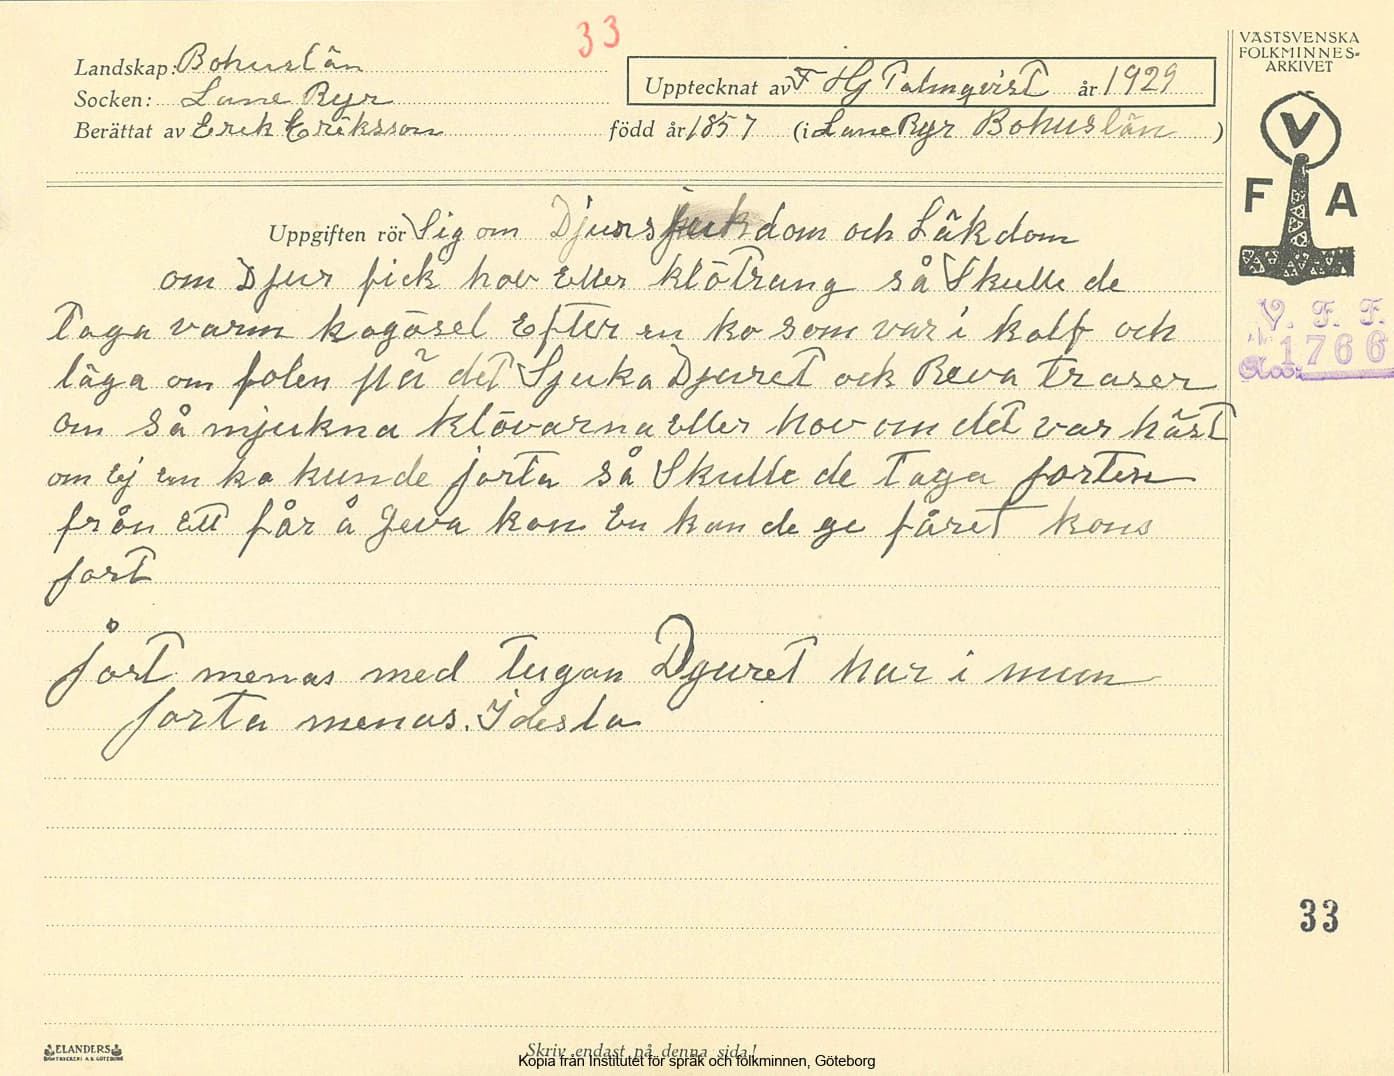 33
VÄSTSVENSKA
FOLKMINNES-
ARKIVET
Landskap: Bohuslän
Upptecknat av F Hj Palmqvist år 1929
Socken: Lane Ryr
Berättat av Erik Eriksson född år 1857 (i Lane Ryr Bohuslän )
V
F A
Uppgiften rör Sig om Djurs sjukdom och Läkdom
om Djur fick hov Eller klötrang så Skulle de
Taga varm kogösel Efter en ko som var i kalf och
läga om folen på det Sjuka Djuret och Reva traser
om så mjukna klövarna Eller hov om det var häst
om Ej En ko kunde jorta så Skulle de Taga jorten
från Ett får å Geva kon En kan de ge fåret kons
jort
jort menas med tugan Djuret har i mun
jorta menas. Idesla
V. F. F.
1766
33
ELANDERS
BOKTRYCKERI A.B. GÖTEBORG
Skriv endast på denna sida!
Kopia från Institutet för språk och folkminnen, Göteborg